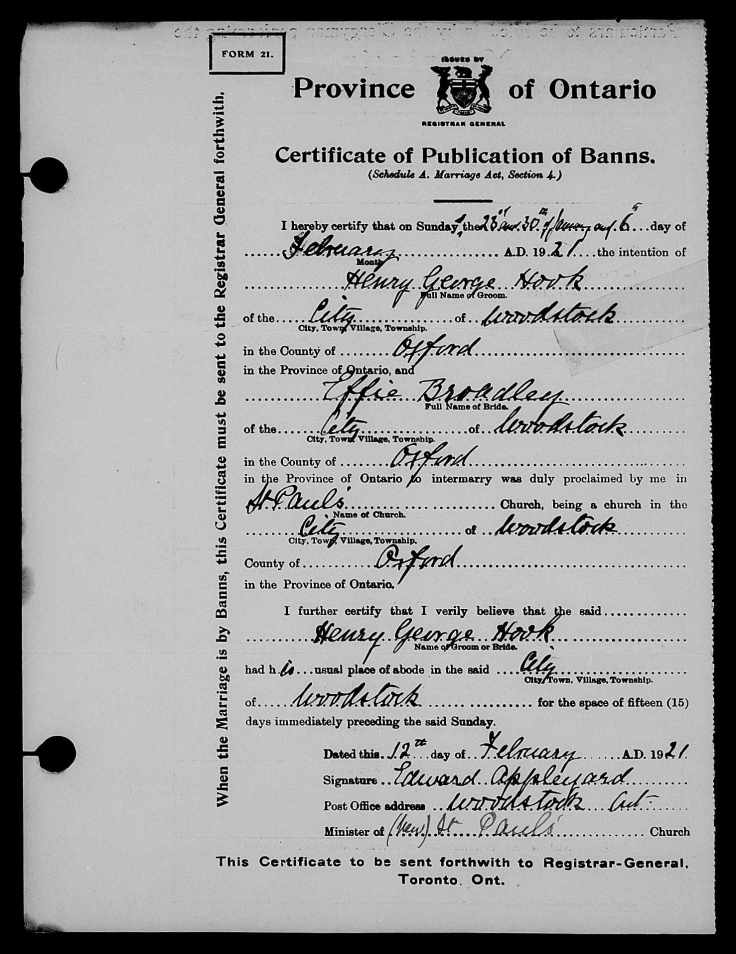 FORM 21.
ISSUED BY
Province of Ontario
REGISTRAR GENERAL
Certificate of Publication of Banns.
(Schedule A. Marriage Act, Section 4.)
I hereby certify that on Sunday, the 23rd and 30th of January and 6th day of
February A.D. 1921 the intention of
Month
Henry George Hook
Full Name of Groom.
of the City of Woodstock
City, Town, Village, Township.
in the County of Oxford
in the Province of Ontario, and
Effie Broadley
Full Name of Bride.
of the City of Woodstock
City, Town, Village, Township.
in the County of Oxford
in the Province of Ontario to intermarry was duly proclaimed by me in
St. Paul's Church, being a church in the
Name of Church.
City of Woodstock
City, Town, Village, Township.
County of Oxford
in the Province of Ontario.
I further certify that I verily believe that the said
Henry George Hook
Name of Groom or Bride.
had his usual place of abode in the said City
City, Town, Village, Township.
of Woodstock for the space of fifteen (15)
days immediately preceding the said Sunday.
Dated this 12th day of February A.D. 1921
Signature Edward Appleyard
Post Office address Woodstock Ont.
Minister of (New) St Paul's Church
This Certificate to be sent forthwith to Registrar-General,
Toronto, Ont.
When the Marriage is by Banns, this Certificate must be sent to the Registrar General forthwith.